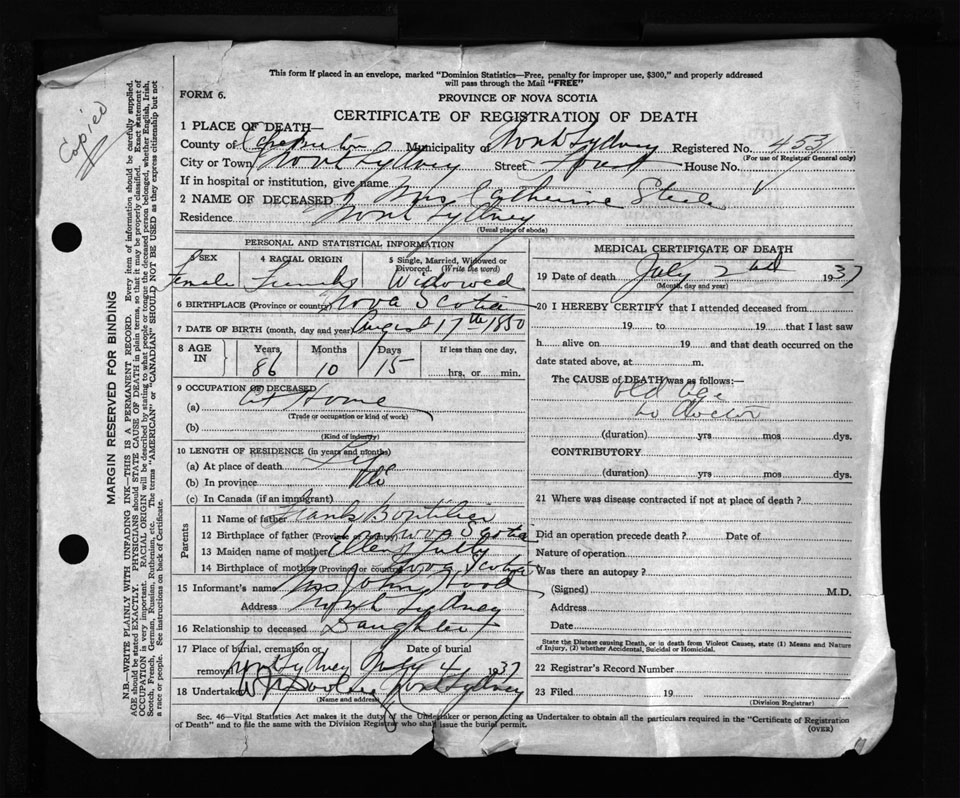 This form if placed in an envelope, marked "Dominion Statistics—Free, penalty for improper use, $300," and properly addressed
will pass through the Mail "FREE"
FORM 6.
PROVINCE OF NOVA SCOTIA
CERTIFICATE OF REGISTRATION OF DEATH
Copied
1 PLACE OF DEATH—
County of Cape Breton Municipality of North Sydney Registered No. 453
(For use of Registrar General only)
City or Town North Sydney Street Forest House No.
If in hospital or institution, give name
2 NAME OF DECEASED Mrs Catherine Steele
Residence North Sydney
(Usual place of abode)
PERSONAL AND STATISTICAL INFORMATION
3 SEX 4 RACIAL ORIGIN 5 Single, Married, Widowed or
Divorced. (Write the word)
Female French Widowed
6 BIRTHPLACE (Province or country) Nova Scotia
7 DATE OF BIRTH (month, day and year) August 17th 1850
8 AGE IN Years Months Days If less than one day,
86 10 15 hrs. or min.
9 OCCUPATION OF DECEASED
(a) At Home
(Trade or occupation or kind of work)
(b)
(Kind of industry)
10 LENGTH OF RESIDENCE (in years and months)
(a) At place of death Life
(b) In province do
(c) In Canada (if an immigrant)
Parents
11 Name of father Frank Boutilier
12 Birthplace of father (Province or country) Nova Scotia
13 Maiden name of mother Ellen
14 Birthplace of mother (Province or country) Nova Scotia
15 Informant's name Mrs John Hood
Address North Sydney
16 Relationship to deceased Daughter
17 Place of burial, cremation or removal Date of burial
North Sydney July 4 1937
18 Undertaker North Sydney
(Name and address)
MEDICAL CERTIFICATE OF DEATH
19 Date of death July 2nd 1937
(Month, day and year)
20 I HEREBY CERTIFY that I attended deceased from
19 to 19 that I last saw
h alive on 19 and that death occurred on the
date stated above, at m.
The CAUSE of DEATH was as follows:—
old age
no doctor
(duration) yrs mos dys.
CONTRIBUTORY
(duration) yrs mos dys.
21 Where was disease contracted if not at place of death?
Did an operation precede death? Date of
Nature of operation
Was there an autopsy?
(Signed) M.D.
Address
Date
State the Disease causing Death, or in death from Violent Causes, state (1) Means and Nature
of Injury, (2) whether Accidental, Suicidal or Homicidal.
22 Registrar's Record Number
23 Filed 19
(Division Registrar)
Sec. 46—Vital Statistics Act makes it the duty of the Undertaker or person acting as Undertaker to obtain all the particulars required in the "Certificate of Registration
of Death" and to file the same with the Division Registrar who shall issue the burial permit.
(OVER)
MARGIN RESERVED FOR BINDING
N.B.—WRITE PLAINLY WITH UNFADING INK—THIS IS A PERMANENT RECORD. Every item of information should be carefully supplied.
AGE should be stated EXACTLY. PHYSICIANS should STATE CAUSE OF DEATH in plain terms, so that it may be properly classified. Exact statement of
OCCUPATION is very important. RACIAL ORIGIN will be described by stating to what people or tongue the deceased person belonged, whether English, Irish,
Scotch, French, German, Russian, Ruthenian, etc. The terms "AMERICAN" or "CANADIAN" SHOULD NOT BE USED as they express citizenship but not
a race or people. See instructions on back of Certificate.